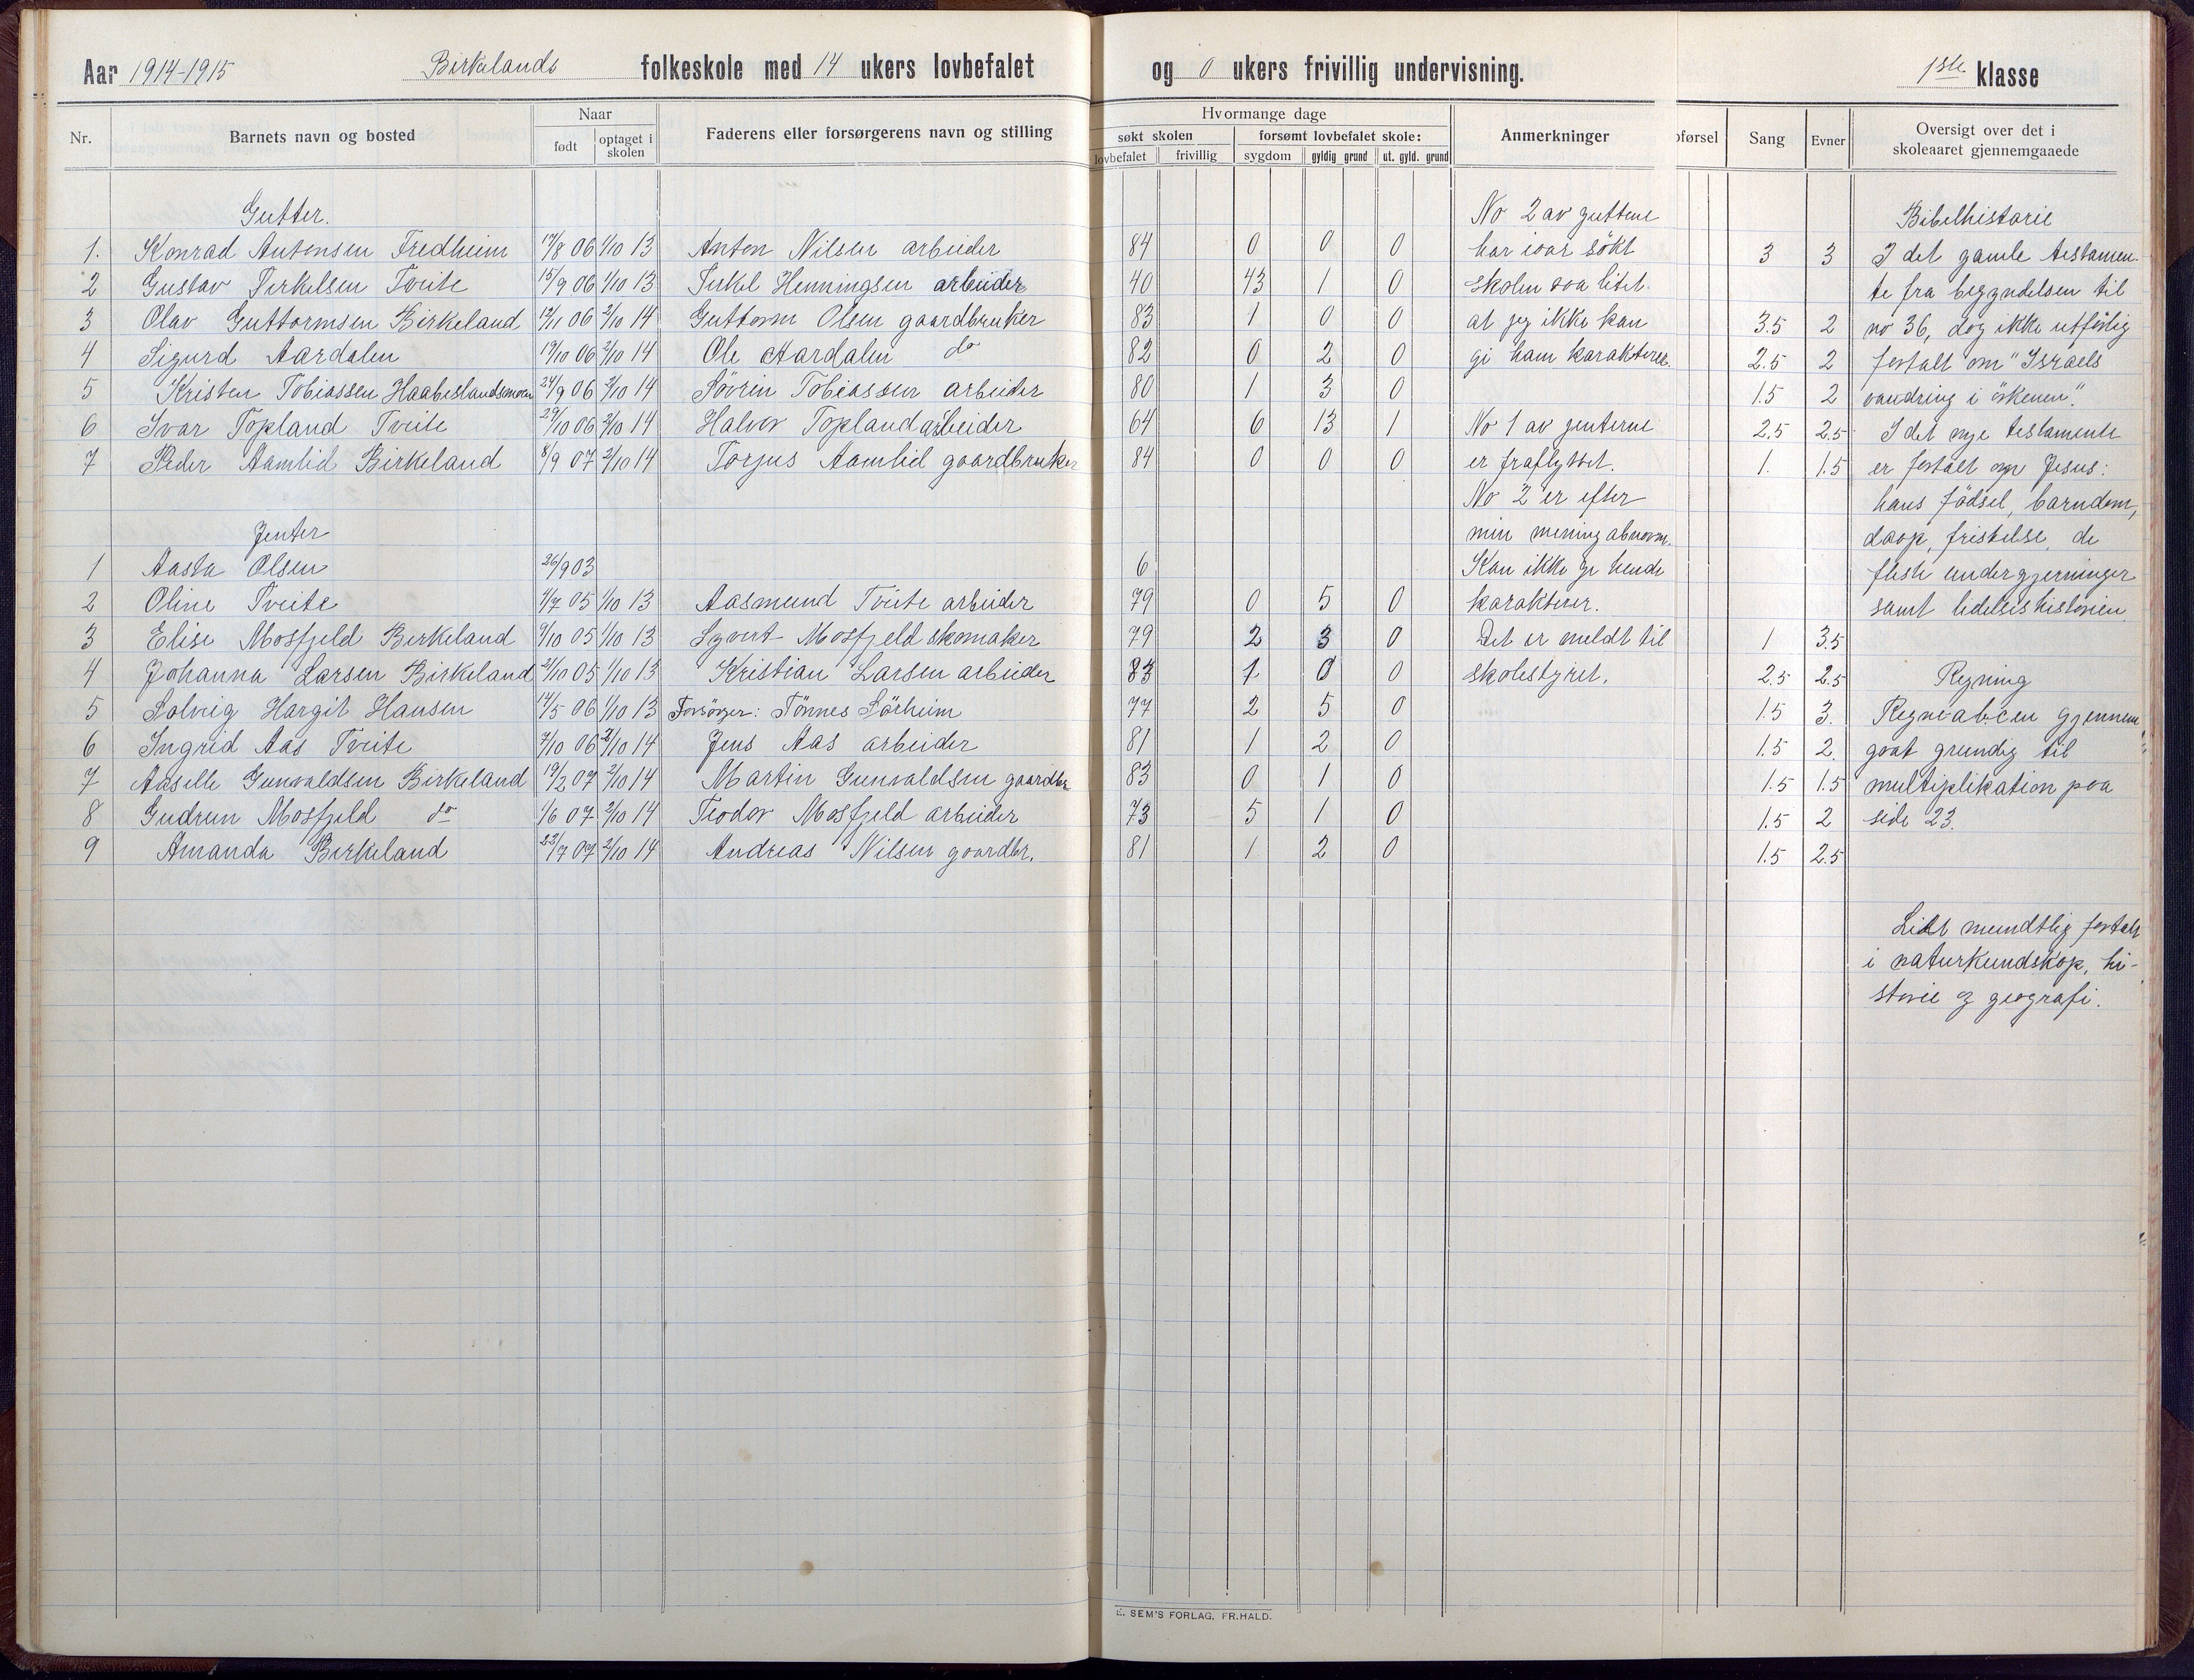 Aar 1914-1915 Birkelands folkeskole med 14 ukers lovbefalet og 0 ukers frivillig undervisning. 1ste klasse
Nr. Barnets navn og bosted Naar født optaget i skolen Faderens eller forsørgerens navn og stilling
Hvormange dage
søkt skolen forsømt lovbefalet skole:
lovbefalet frivillig sygdom gyldig grund ut. gyld. grund
Anmerkninger
oførsel Sang Evner
Oversigt over det i
skoleaaret gjennemgaaede
Gutter.
1. Konrad Antonsen Fredheim 17/8 06 1/10 13 Anton Nilsen arbeider 84 0 0 0 3 3
2 Gustav Terkelsen Tveite 15/9 06 1/10 13 Terkel Henningsen arbeider 40 43 1 0
3 Olav Guttormsen Birkeland 12/11 06 2/10 14 Guttorm Olsen gaardbruker 83 1 0 0 3.5 2
4 Sigurd Aardalen 19/10 06 2/10 14 Ole Aardalen do 82 0 2 0 2.5 2
5 Kristen Tobiassen Haabeslandsmoen 24/9 06 2/10 14 Sövrin Tobiassen arbeider 80 1 3 0 1.5 2
6 Ivar Topland Tveite 29/10 06 2/10 14 Halvor Topland arbeider 64 6 13 1 2.5 2.5
7 Peder Aamlid Birkeland 8/9 07 2/10 14 Torjus Aamlid gaardbruker 84 0 0 0 1. 1.5
Jenter
1 Aasta Olsen 26/9 03 6
2 Oline Tveite 1/7 05 1/10 13 Aasmund Tveite arbeider 79 0 5 0
3 Elise Mosfjeld Birkeland 9/10 05 1/10 13 Syvert Mosfjeld skomaker 79 2 3 0 1 3.5
4 Johanna Larsen Birkeland 21/10 05 1/10 13 Kristian Larsen arbeider 83 1 0 0 2.5 2.5
5 Solveig Hargit Hansen 14/5 06 1/10 13 Forsörger: Tönnes Sörheim 77 2 5 0 1.5 3.
6 Ingrid Aas Tveite 7/10 06 2/10 14 Jens Aas arbeider 81 1 2 0 1.5 2.
7 Aaselle Gunvaldsen Birkeland 19/2 07 2/10 14 Martin Gunvaldsen gaardbr 83 0 1 0 1.5 1.5
8 Gudrun Mosfjeld do 1/6 07 2/10 14 Teodor Mosfjeld arbeider 73 5 1 0 1.5 2
9 Amanda Birkeland 22/7 07 2/10 14 Andreas Nilsen gaardbr. 81 1 2 0 1.5 2.5
No 2 av guttene
har ivar sökt
skolen saa litet.
at jeg ikke kan
gi ham karakterer.
No 1 av jenterne
er fraflyttet.
No 2 er efter
min mening abnorm.
Kan ikke gi hende
karakterer.
Det er meldt til
skolestyret.
Bibelhistorie
I det gamle testamen-
te fra begyndelsen til
no 36, dog ikke utførlig
fortalt om "Israels
vandring i örkenen".
I det nye testamente
er fortalt om Jesus:
hans födsel, barndom,
daap, fristelse, de
fleste undergjerninger
samt lidelseshistorien.
Regning
Regneabcen gjennem
gaat grundig til
multiplikation paa
side 23.
Lidt mundtlig fortalt
i naturkundskap, hi-
storie og geografi.
E. SEM'S FORLAG, FR.HALD.